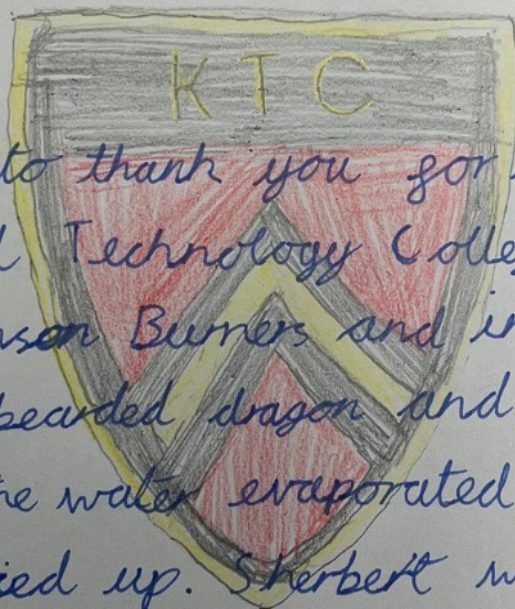 KTC
to thank you for
Technology Colle
Burners and in
bearded dragon and
he water evaporated
ied up. Sherbert w